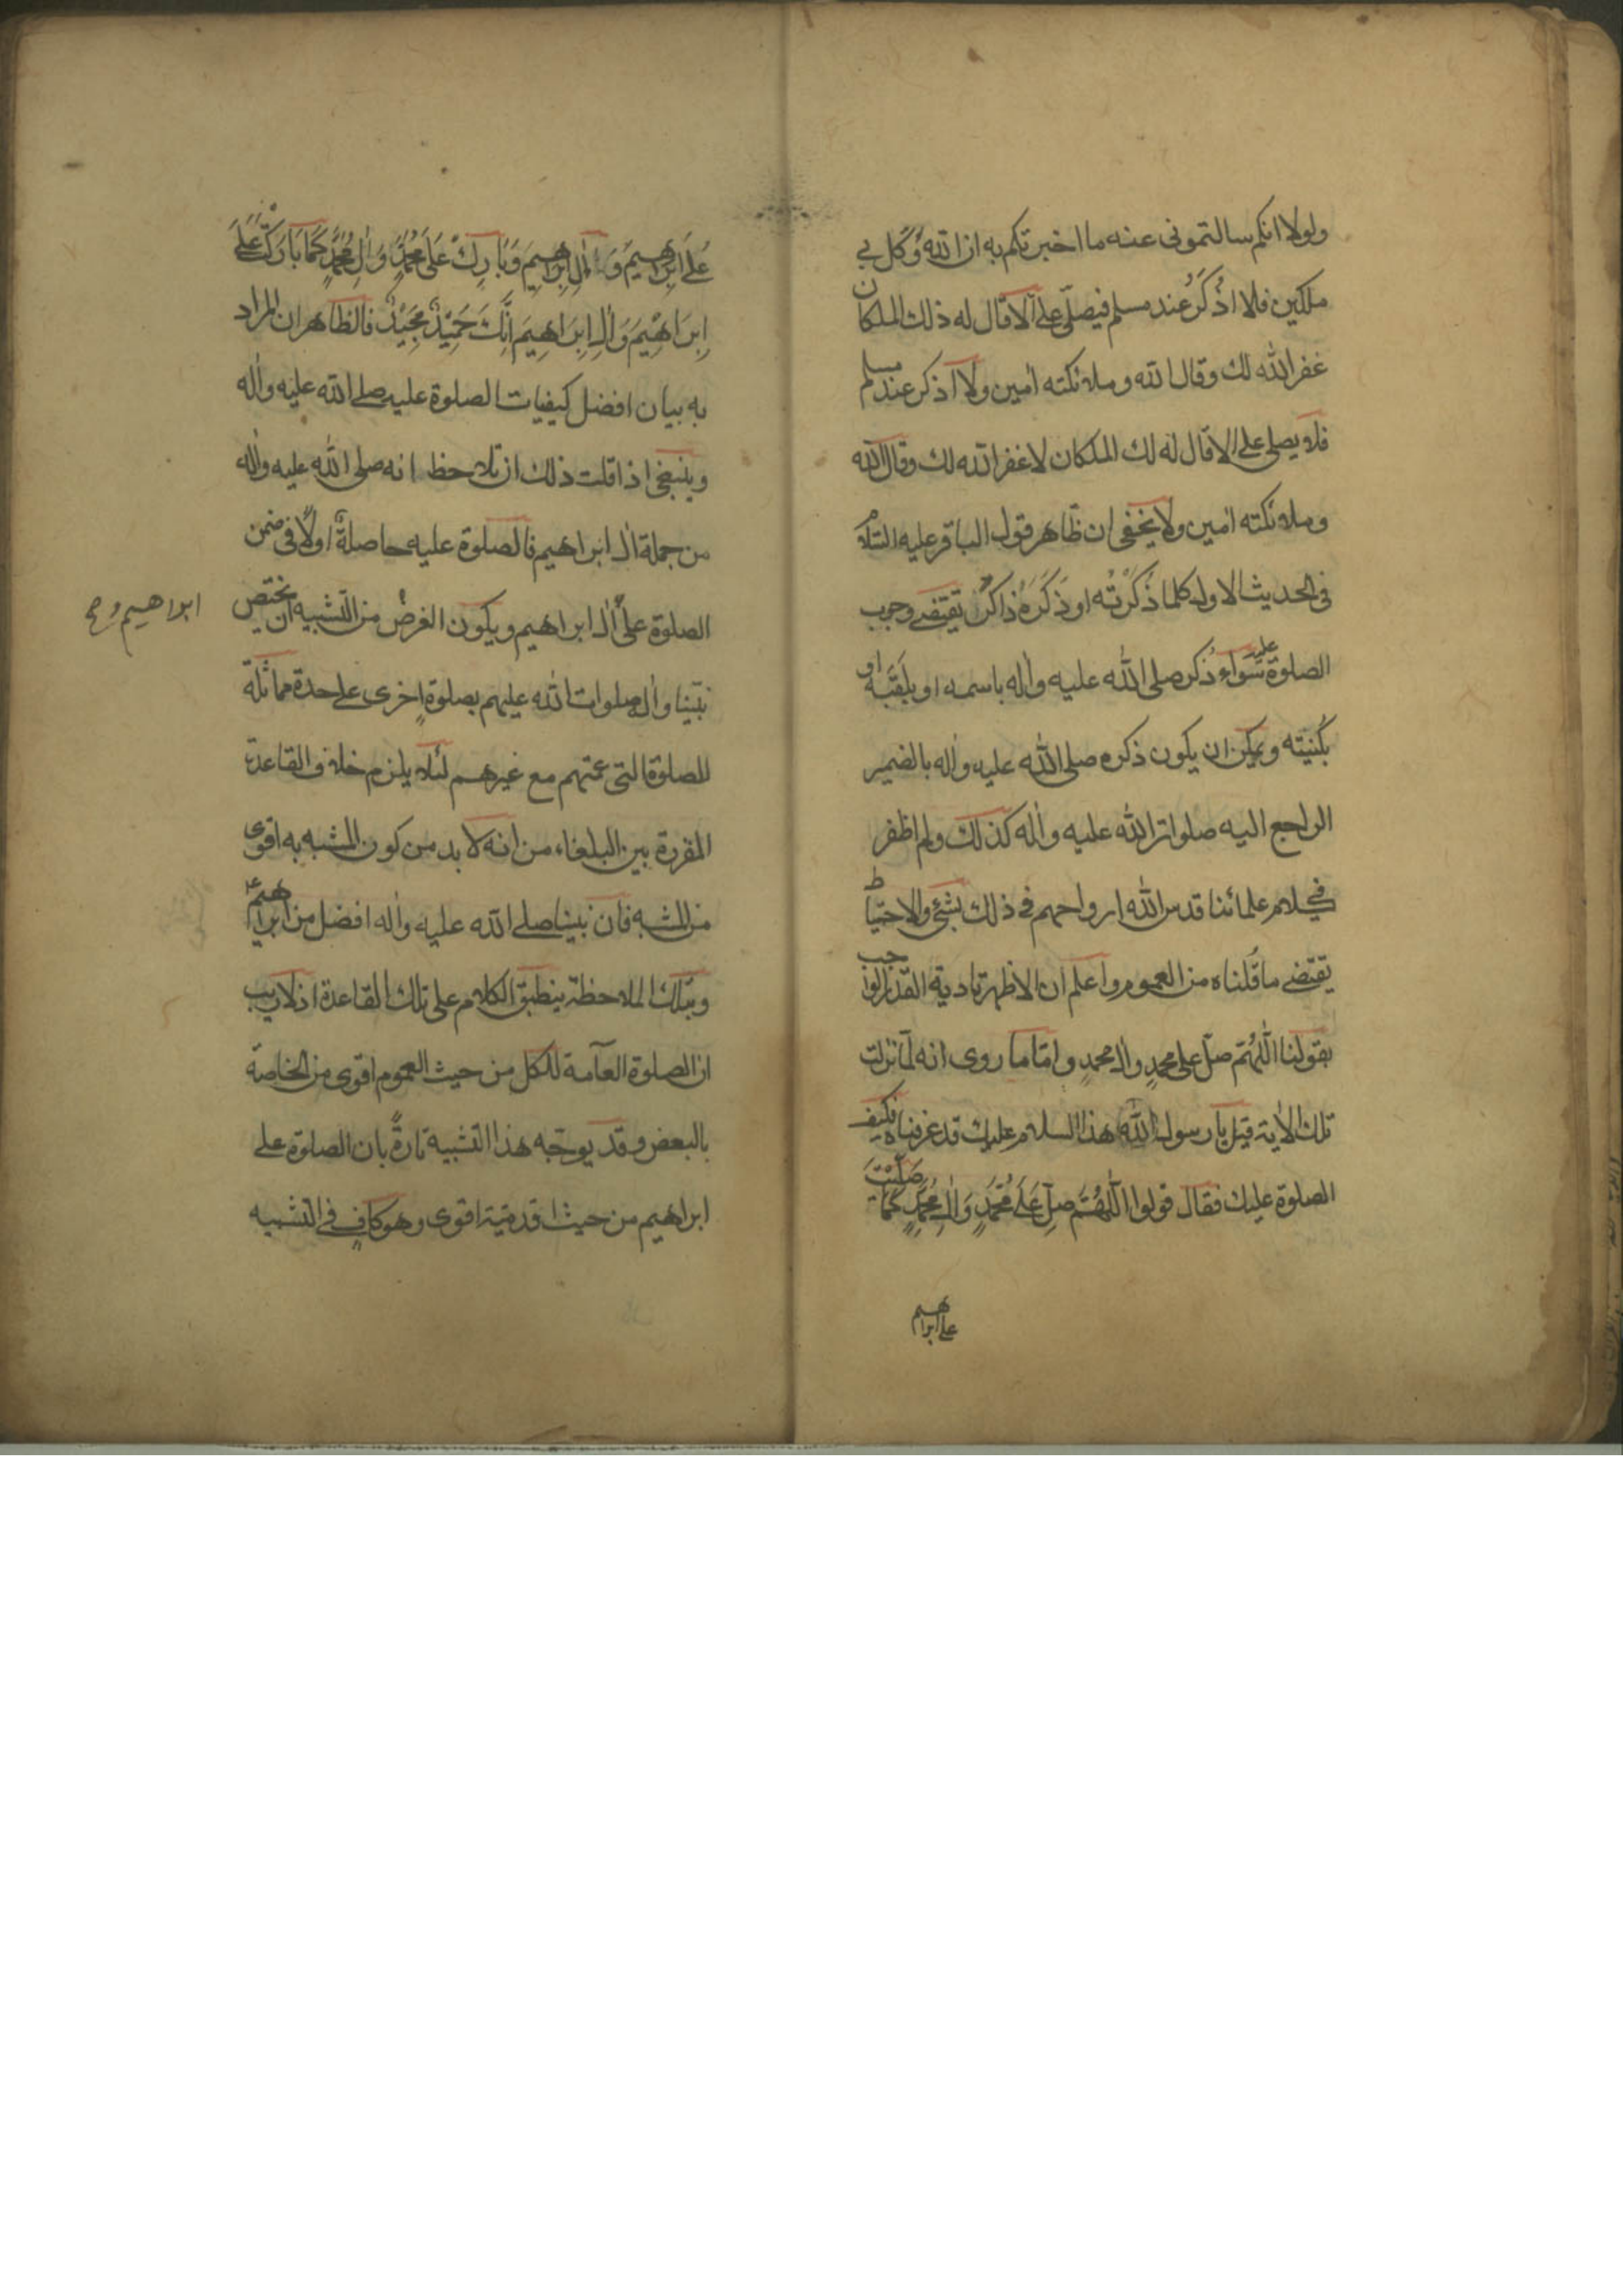 ولولا انكم سالتمونى عنه ما اخبرتكم به ان الله وكّل بى
ملكين فلا اُذكَرُ عند مسلم فيصلّى علىّ الا قال له ذلك الملكان
غفر الله لك وقال الله وملائكته امين ولا اذكر عند مسلم
فلا يصلى على الا قال له لك الملكان لا غفر الله لك وقال الله
وملائكته امين ولا يخفى ان ظاهر قول الباقر عليه السلام
فى الحديث الاول كلما ذَكَرْتَه او ذَكَرَهُ ذاكرٌ يقتضى وجوب
الصلوة عليه سَوَاء ذُكر صلى الله عليه واله باسمه او بلَقَبَه او
بكُنيَته ويمكن ان يكون ذكره صلى الله عليه واله بالضمير
الراجع اليه صلوات الله عليه واله كذلك ولم اظفر
فى كلام علمائنا قدس الله ارواحهم فى ذلك بشئ والاحتياط
يقتضى ما قُلناه من العموم واعلم ان الاظهر تادية القدر الواجب
بقولنا اللّهُمّ صلّ على محمدٍ وال محمدٍ واما ما روى انه لمّا نزلت
تلك الاية قيل يا رسول الله هذا السلام عليك قد عرفناه فكيف
الصلوة عليك فقال قولوا اللّهُمَّ صلِّ عَلَى مُحَمّدٍ وَالِ مُحَمّدٍ كما صَلّيْتَ
على ابراهيم
عَلَى ابْرَاهِيمَ وَ الِ ابْرَاهِيمَ وَبَارِكْ عَلَى مُحَمّدٍ وَالِ مُحَمّدٍ كَمَا بَارَكْتَ عَلَى
اِبرَاهِيْمَ وَالِ اِبرَاهِيمَ اِنَّكَ حَمِيْدٌ مَجِيْدٌ فالظاهر ان المراد
به بيان افضل كيفيات الصلوة عليه صلى الله عليه واله
وينبغى اذا قلت ذلك ان تلاحظ انه صلى الله عليه واله
من جملة ال ابراهيم فالصلوة عليه حاصلةٌ اولًا فى ضمن
الصلوة على ال ابراهيم ويكون الغرض من التشبيه ان يختص
ابراهيم و صح
نبيّنا واله صلوات الله عليهم بصلوةٍ اخرى على حدة مماثلة
للصلوة التى عمتهم مع غيرهم لئلا يلزم خلاف القاعدة
المقررة بين البلغاء من انه لا بد من كون المشبه به اقوى
من المشبه فان نبينا صلى الله عليه واله افضل من ابراهيم ع
وبتلك الملاحظة ينطبق الكلام على تلك القاعدة اذ لا ريب
ان الصلوة العآمة للكل من حيث العموم اقوى من الخاصة
بالبعض وقد يوجّه هذا التشبيه تارةً بان الصلوة على
ابراهيم من حيث اقدميّة اقوى وهو كافٍ فى التشبيه